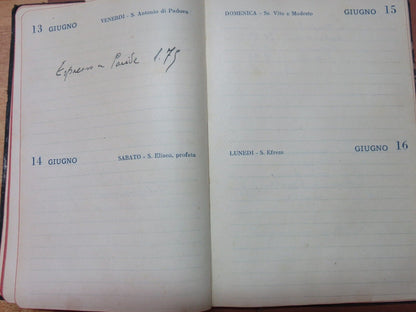 13 GIUGNO VENERDI - S. Antonio di Padova
Espresso a Paride £. 75
14 GIUGNO SABATO - S. Eliseo, profeta
DOMENICA - Ss. Vito e Modesto GIUGNO 15
LUNEDI - S. Efrem GIUGNO 16